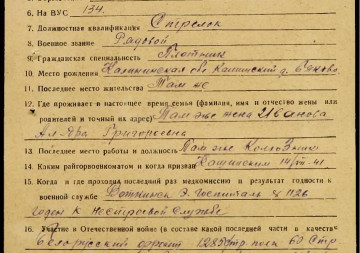 6. На ВУС 134.
7. Должностная квалификация Стрелок
8. Военное звание Рядовой
9. Гражданская специальность Плотник
10. Место рождения Калининская обл Кашинский д.
11. Последнее место жительства Там же
12. Где проживает в настоящее время семья (фамилия, имя и отчество жены или
родителей и точный их адрес) Там же жена Иванова
Григорьевна
13. Последнее место работы и должность Там же Колхозник
14. Каким райгорвоенкоматом и когда призван Кашинским 41
15. Когда и где проходил последний раз медкомиссию и результат годности к
военной службе Э. Госпиталь
Годен к нестроевой службе
16. Участие в Отечественной войне (в составе какой последней части и в качестве
Белорусский фронт 1285 стр полк 60 Стр